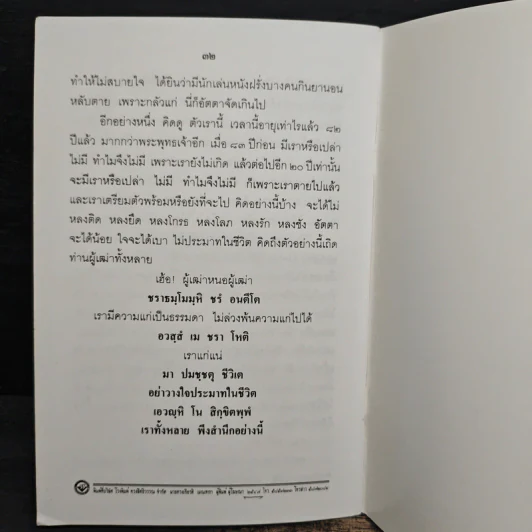 ๓๒
ทำให้ไม่สบายใจ ได้ยินว่ามีนักเล่นหนังฝรั่งบางคนกินยานอน
หลับตาย เพราะกลัวแก่ นี่ก็อัตตาจัดเกินไป
อีกอย่างหนึ่ง คิดดู ตัวเรานี้ เวลานี้อายุเท่าไรแล้ว ๘๒
ปีแล้ว มากกว่าพระพุทธเจ้าอีก เมื่อ ๘๓ ปีก่อน มีเราหรือเปล่า
ไม่มี ทำไมจึงไม่มี เพราะเรายังไม่เกิด แล้วต่อไปอีก ๒๐ ปีเท่านั้น
จะมีเราหรือเปล่า ไม่มี ทำไมจึงไม่มี ก็เพราะเราตายไปแล้ว
และเราเตรียมตัวพร้อมหรือยังที่จะไป คิดอย่างนี้บ้าง จะได้ไม่
หลงติด หลงยึด หลงโกรธ หลงโลภ หลงรัก หลงชัง อัตตา
จะได้น้อย ใจจะได้เบา ไม่ประมาทในชีวิต คิดถึงตัวอย่างนี้เถิด
ท่านผู้เฒ่าทั้งหลาย
เฮ้อ! ผู้เฒ่าหนอผู้เฒ่า
ชราธมฺโมมฺหิ ชรํ อนตีโต
เรามีความแก่เป็นธรรมดา ไม่ล่วงพ้นความแก่ไปได้
อวสฺสํ เม ชรา โหติ
เราแก่แน่
มา ปมชฺชตุ ชีวิเต
อย่าวางใจประมาทในชีวิต
เอวญฺหิ โน สิกฺขิตพฺพํ
เราทั้งหลาย พึงสำนึกอย่างนี้
พิมพ์ที่บริษัท โรงพิมพ์